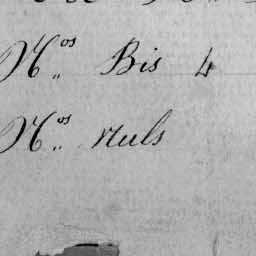 N.os Bis 4
N.os nuls